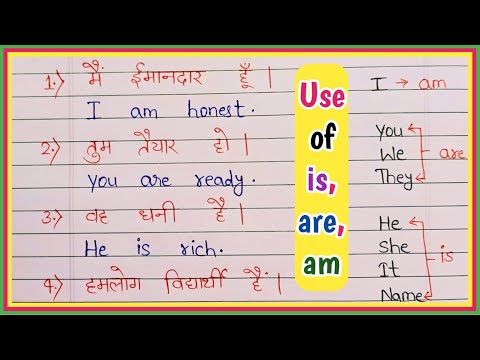 1.) मैं ईमानदार हूँ |
I am honest.
2.) तुम तैयार हो |
you are ready.
3.) वह धनी है |
He is rich.
4.) हमलोग विद्यार्थी हैं |
Use
of
is,
are,
am
I → am
You
We
They
are
He
She
It
Name
is